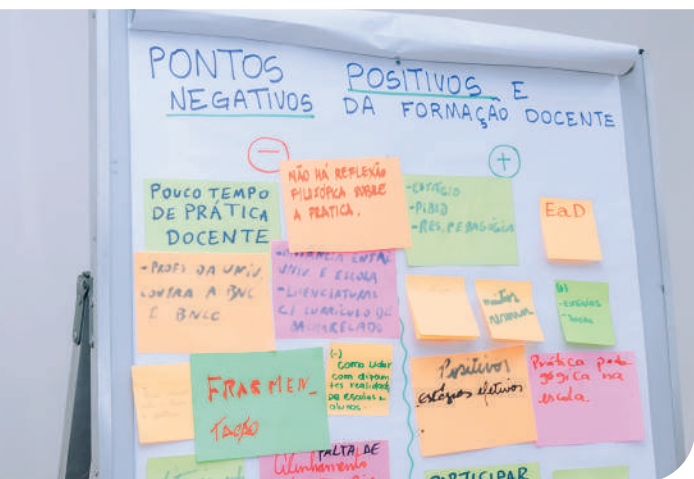 PONTOS POSITIVOS E
NEGATIVOS DA FORMAÇÃO DOCENTE
POUCO TEMPO
DE PRÁTICA
DOCENTE
NÃO HÁ REFLEXÃO
FILOSÓFICA SOBRE
A PRATICA.
-ESTÁGIO
-PIBID
-RES. PEDAGÓGICA
EaD
-PROFS DA UNIV.
CONTRA A BNC
E BNCC
-DISTÂNCIA ENTRE
UNIV. E ESCOLA
-LICENCIATURAS
C/ CURRÍCULO DE
BACHARELADO
FRAGMEN-
TAÇÃO
(-)
como lidar
com
tes realidades
alunos.
Positivos
estágios efetivos
Prática peda-
gógica na
escola.
FALTA DE
PARTICIPAR